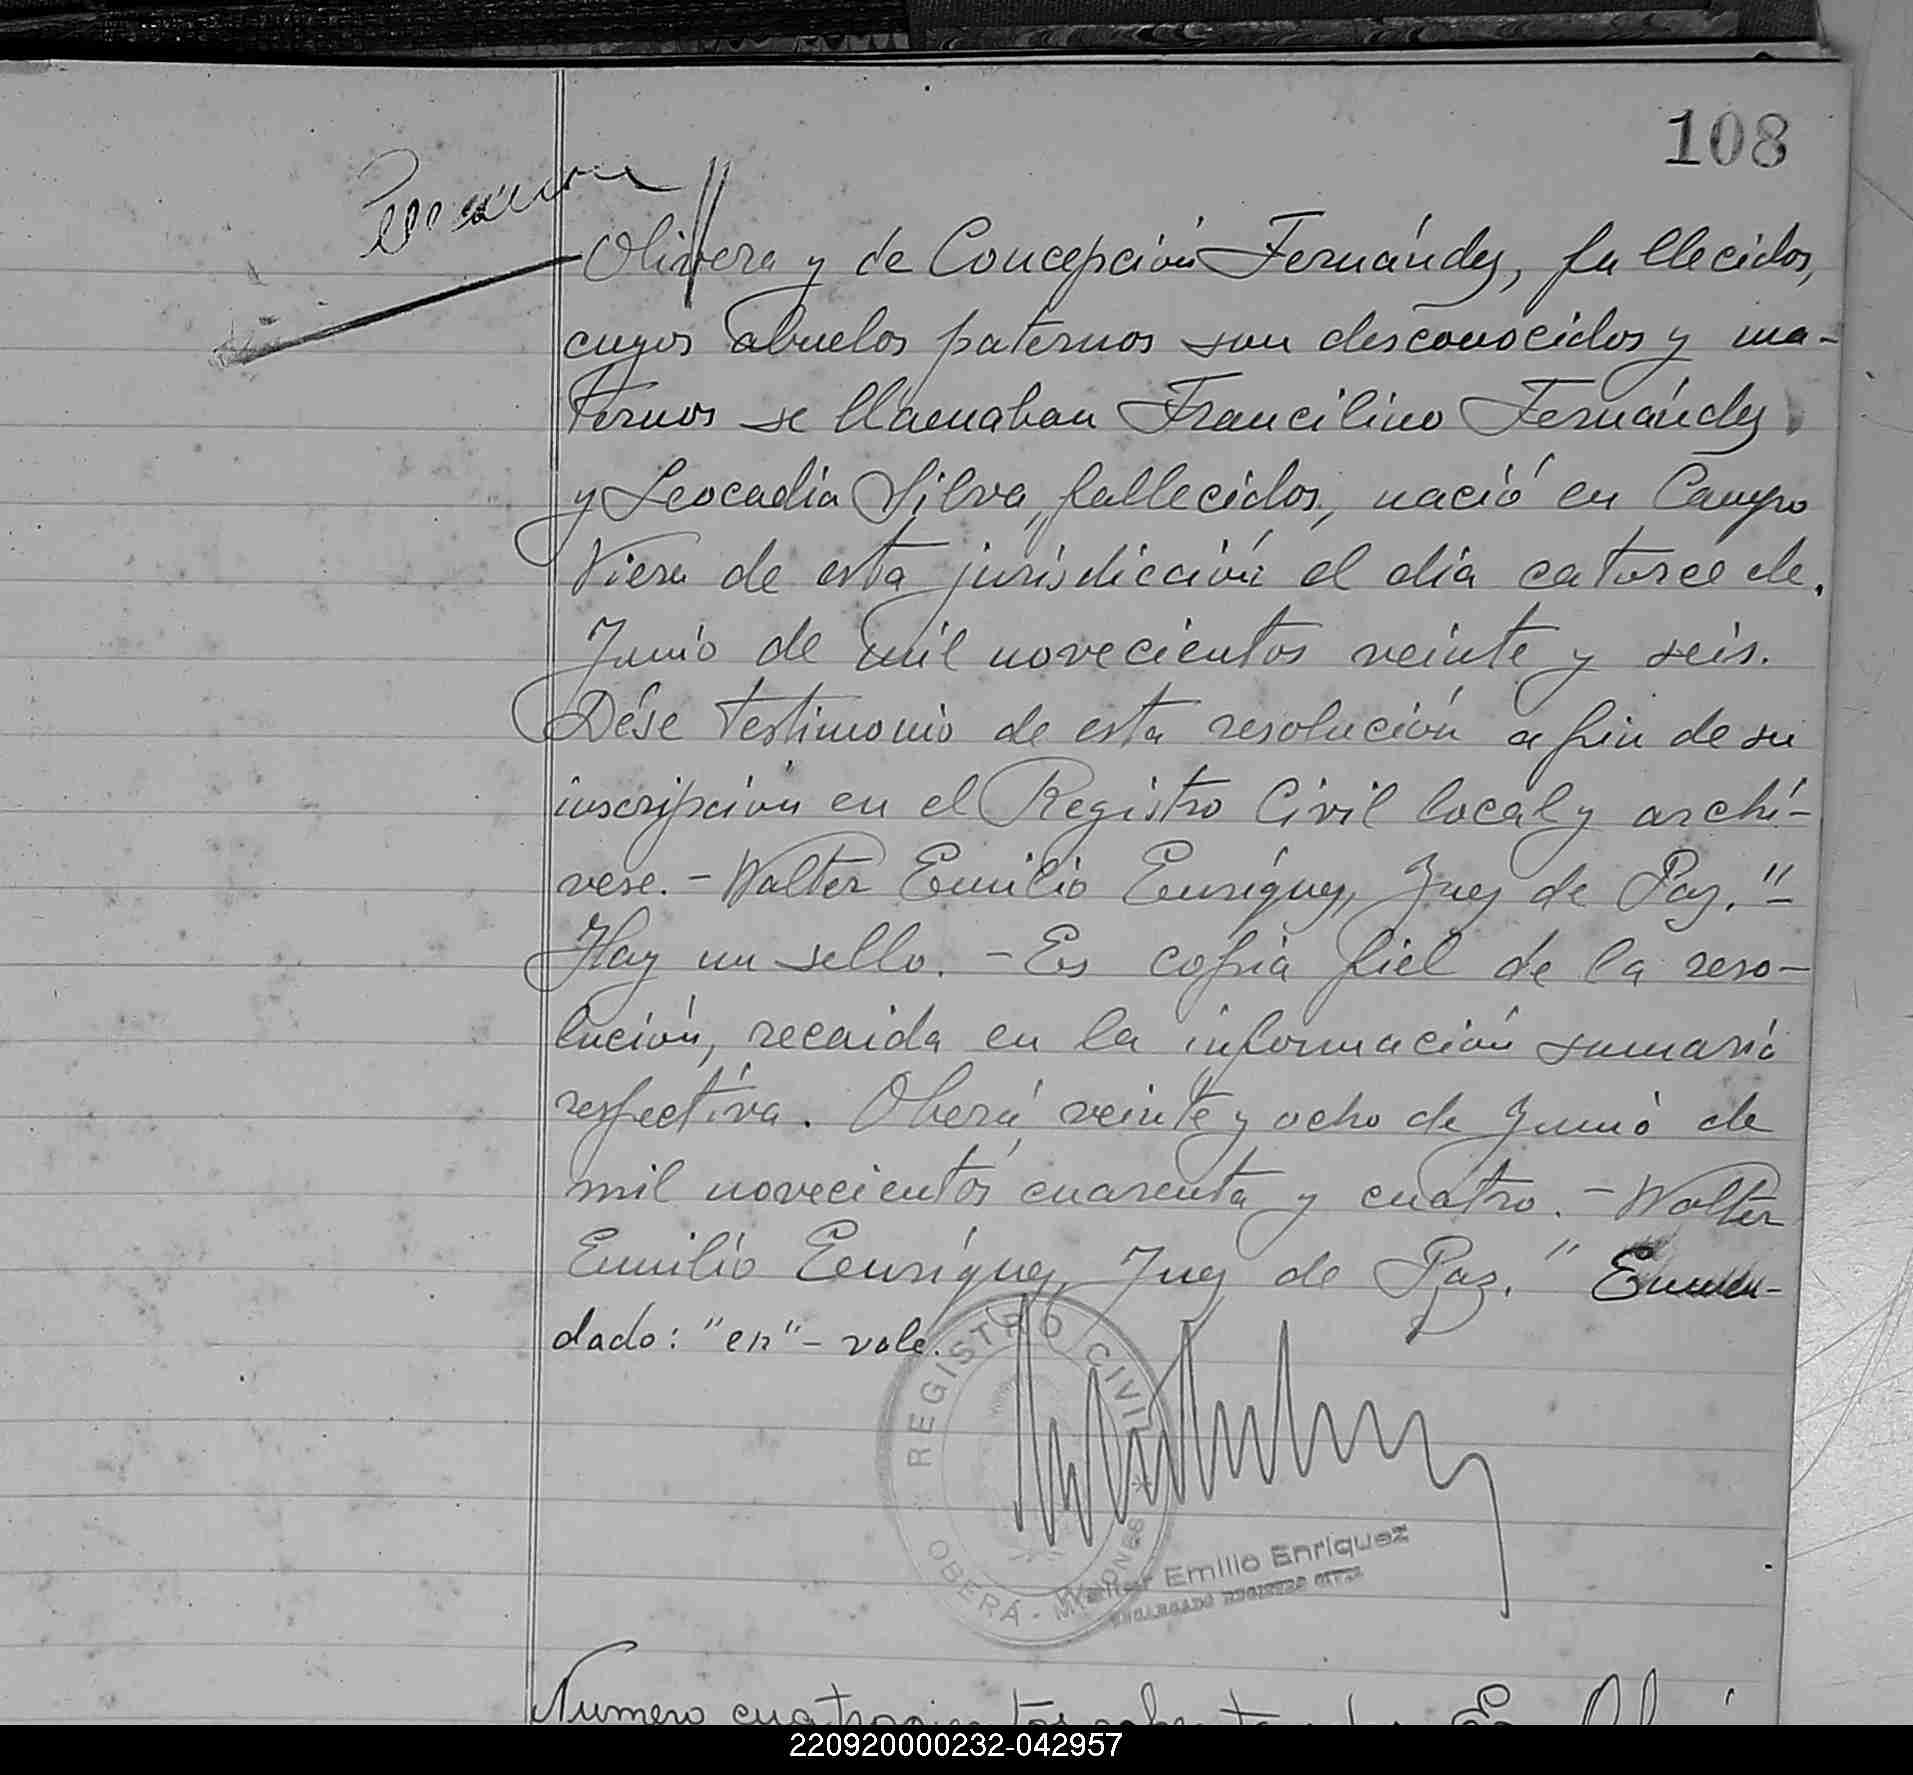 108
Olivera y de Concepción Fernández, fallecidos,
cuyos abuelos paternos son desconocidos y ma-
ternos se llamaban Francilino Fernández
y Leocadia Silva, fallecidos, nació en Campo
Viera de esta jurisdicción el día catorce de
Junio de mil novecientos veinte y seis.
Dése testimonio de esta resolución a fin de su
inscripción en el Registro Civil local y archí-
vese. - Walter Emilio Enríquez, Juez de Paz." -
Hay un sello. - Es copia fiel de la reso-
lución, recaida en la información sumaria
respectiva. Oberá, veinte y ocho de Junio de
mil novecientos cuarenta y cuatro. - Walter
Emilio Enríquez, Juez de Paz." Enmen-
dado: "en" - vale.
REGISTRO CIVIL
OBERÁ - MISIONES
Walter Emilio Enriquez
ENCARGADO REGISTRO CIVIL
Numero cuatrocientos
220920000232-042957